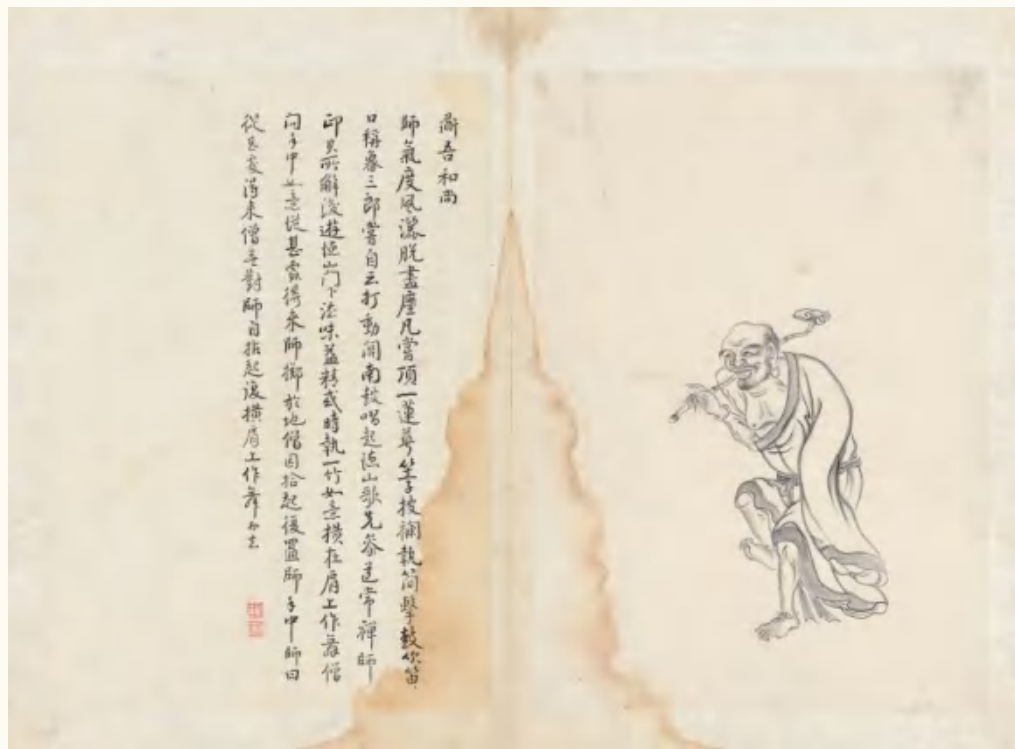 關吾和尚
師氣度風灑脫盡塵凡嘗頂一蓮華笠披襴執简擊鼓吹笛
口稱魯三郎嘗自云打動關南鼓唱起德山歌先參道常禪師
印其所解後遊德山门下法味益精或時執一竹如意橫在肩上作舞僧
问手中如意從甚處得來師擲於地僧因拾起復置師手中師曰
從甚處得來僧無對師自拈起復橫肩上作舞而去